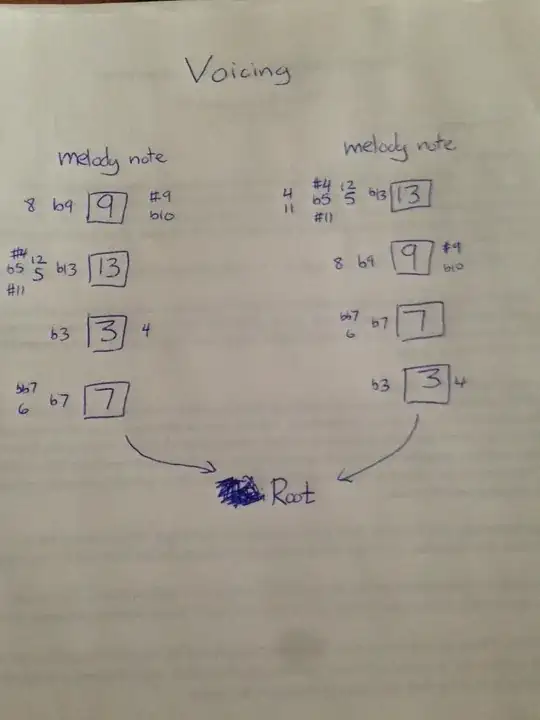 Voicing
melody note
8 b9 9 #9
b10
#4
b5 12 b13 13
5
#11
b3 3 4
bb7 b7 7
6
melody note
4 #4 12 b13 13
11 b5 5
#11
8 b9 9 #9
b10
bb7 b7 7
6
b3 3 4
Root